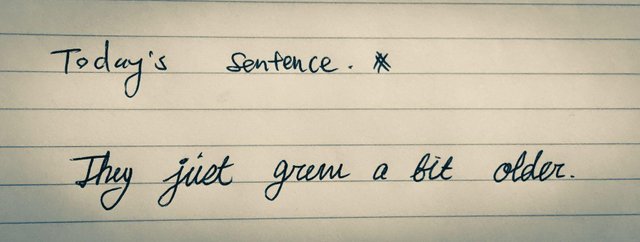 Today's sentence. *
They just grew a bit older.